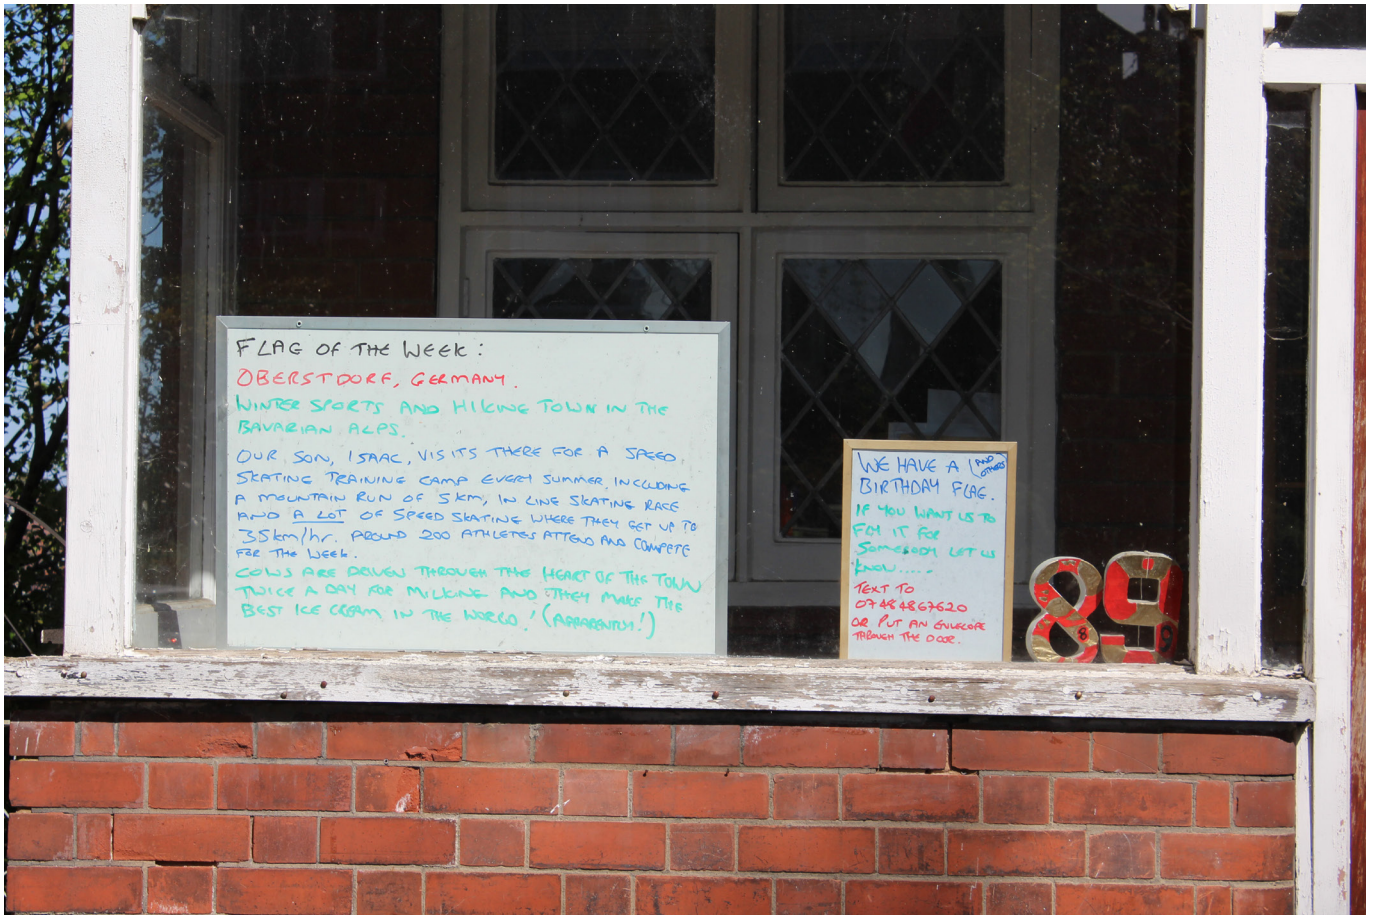 FLAG OF THE WEEK:
OBERSTDORF, GERMANY.
WINTER SPORTS AND HIKING TOWN IN THE
BAVARIAN ALPS.
OUR SON, ISAAC, VISITS THERE FOR A SPEED
SKATING TRAINING CAMP EVERY SUMMER, INCLUDING
A MOUNTAIN RUN OF 5KM, IN LINE SKATING RACE
AND A LOT OF SPEED SKATING WHERE THEY GET UP TO
35km/hr. AROUND 200 ATHLETES ATTEND AND COMPETE
FOR THE WEEK.
COWS ARE DRIVEN THROUGH THE HEART OF THE TOWN
TWICE A DAY FOR MILKING AND THEY MAKE THE
BEST ICE CREAM IN THE WORLD! (APPARENTLY!)
WE HAVE A (AND OTHERS)
BIRTHDAY FLAG.
IF YOU WANT US TO
FLY IT FOR
SOMEBODY LET US
KNOW.....
TEXT TO
07484867620
OR PUT AN ENVELOPE
THROUGH THE DOOR.
89
8 9